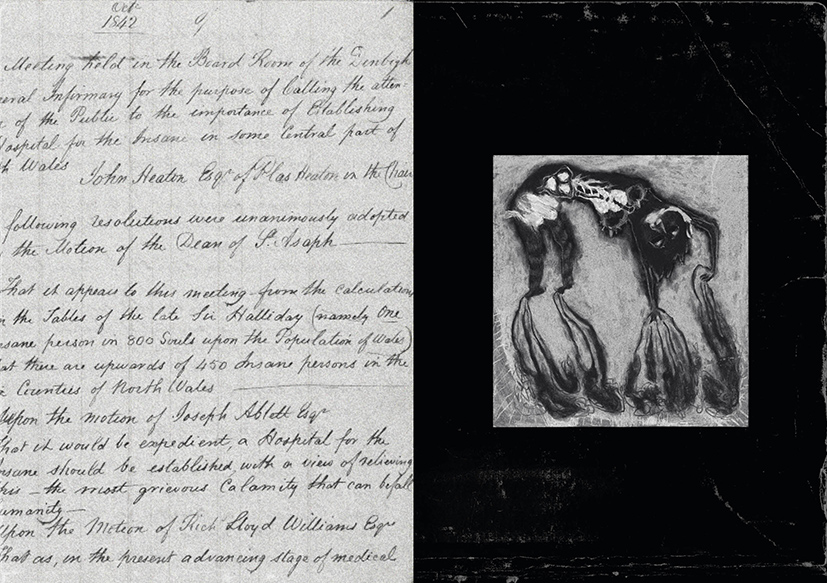 Octr
1842
9
1
Meeting held in the Board Room of the Denbigh
eral Infirmary for the purpose of Calling the atten-
of the Public to the importance of Establishing
Hospital for the Insane in some Central part of
th Wales
John Heaton Esqr of Plas Heaton in the Chair
following resolutions were unanimously adopted
the Motion of the Dean of St. Asaph
That it appears to this meeting from the calculations
in the Tables of the late Sir Halliday (namely One
nsane person in 800 Souls upon the Population of Wales)
at there are upwards of 450 Insane persons in the
Counties of North Wales
Upon the motion of Joseph Ablett Esqr
That it would be expedient, a Hospital for the
nsane should be established, with a view of relieving
this - the most grievous Calamity that can befall
umanity
Upon the Motion of Rich Lloyd Williams Esqr
That as, in the present advancing stage of medical